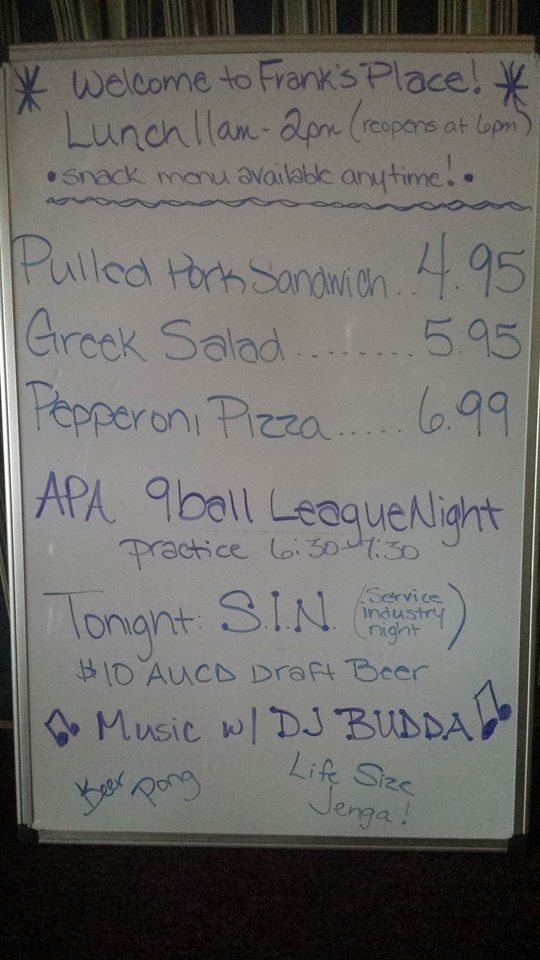 Welcome to Frank's Place!
Lunch 11am - 2pm (reopens at 6pm)
• snack menu available anytime! •
Pulled Pork Sandwich .. 4.95
Greek Salad ........ 5.95
Pepperoni Pizza ..... 6.99
APA 9ball League Night
practice 6:30-7:30
Tonight: S.I.N. (Service industry night)
$10 AUCD Draft Beer
Music w/ DJ BUDDA
Beer Pong
Life Size
Jenga!